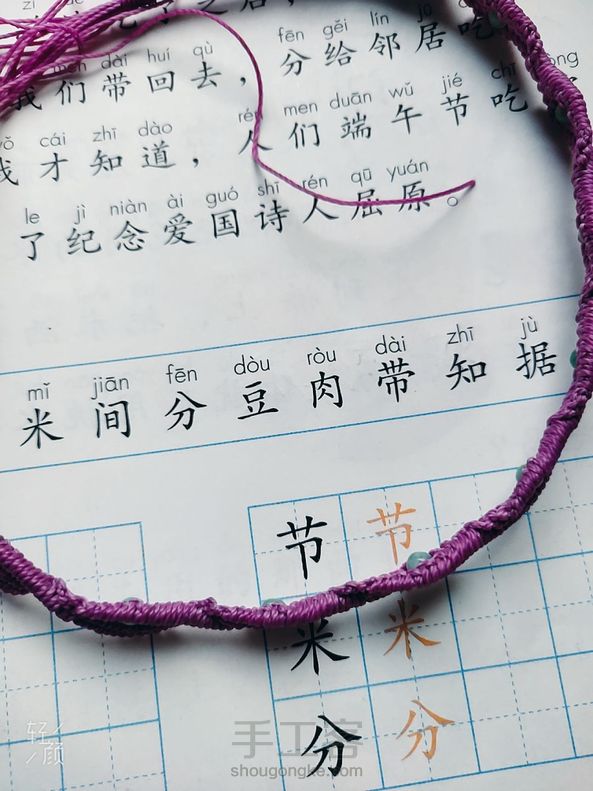 zi le zhī
men dài huí qù fēn gěi lín jū
我们带回去，分给邻居吃
cái zhī dào rén men duān wǔ jié chī
我才知道，人们端午节吃
le jì niàn ài guó shī rén qū yuán
了纪念爱国诗人屈原。
mǐ jiān fēn dòu ròu dài zhī jù
米间分豆肉带知据
节节
米米
分分
轻颜
手工客
shougongke.com